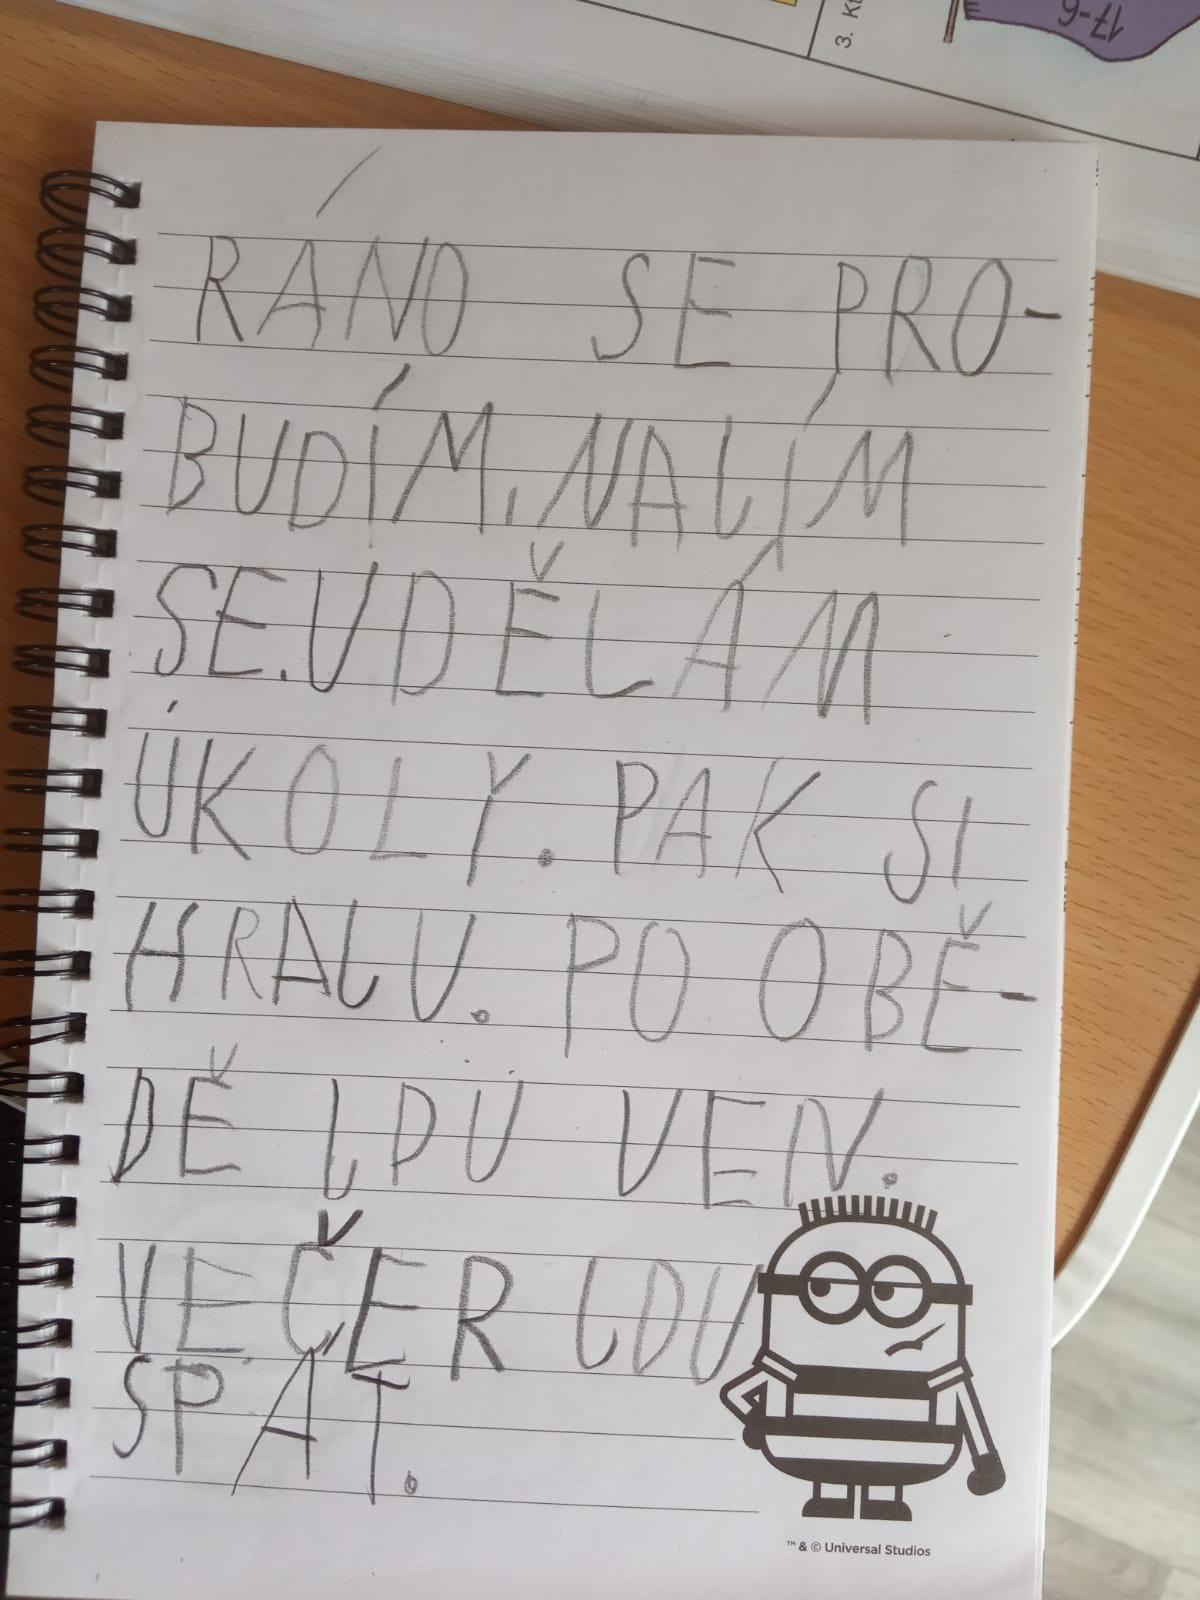 3. K
17-6
RÁNO SE PRO-
BUDÍM. NALÍM
SE. UDĚLÁM
ÚKOLY. PAK SI
HRAJU. PO OBĚ-
DĚ JDU VEN.
VEČER JDU
SPÁT.
™ & © Universal Studios